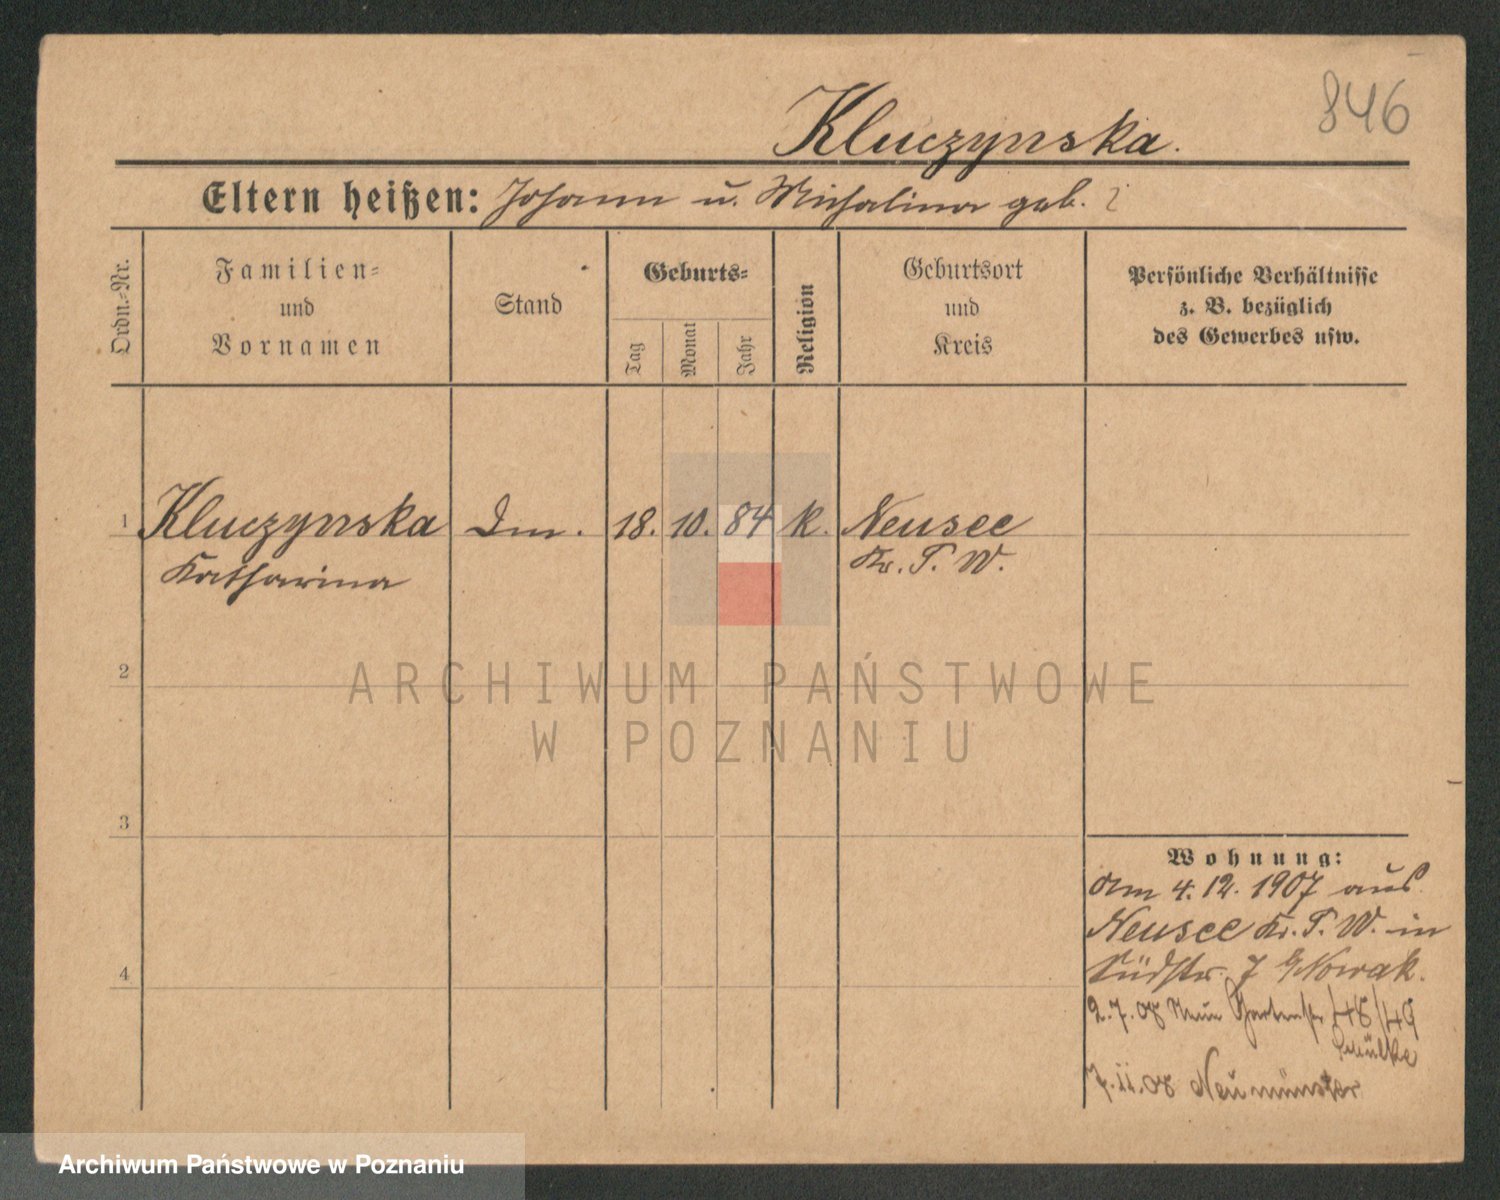 846
Kluczynska.
Eltern heißen: Johann u. Michalina geb. ?
Ordn.-Nr.
Familien-
und
Vornamen
Stand
Geburts-
Tag
Monat
Jahr
Religion
Geburtsort
und
Kreis
Persönliche Verhältnisse
z. B. bezüglich
des Gewerbes usw.
1 Kluczynska Dm. 18. 10. 84 k. Neusee
Katharina Kr. P. W.
2
3
4
Wohnung:
Am 4. 12. 1907 aus
Neusee Kr. P. W. in
Südstr. 7 b/Nowak.
2.7.08 Neue Gartenstr 48/49
7.11.08 Neumünster
ARCHIWUM PAŃSTWOWE
W POZNANIU
Archiwum Państwowe w Poznaniu